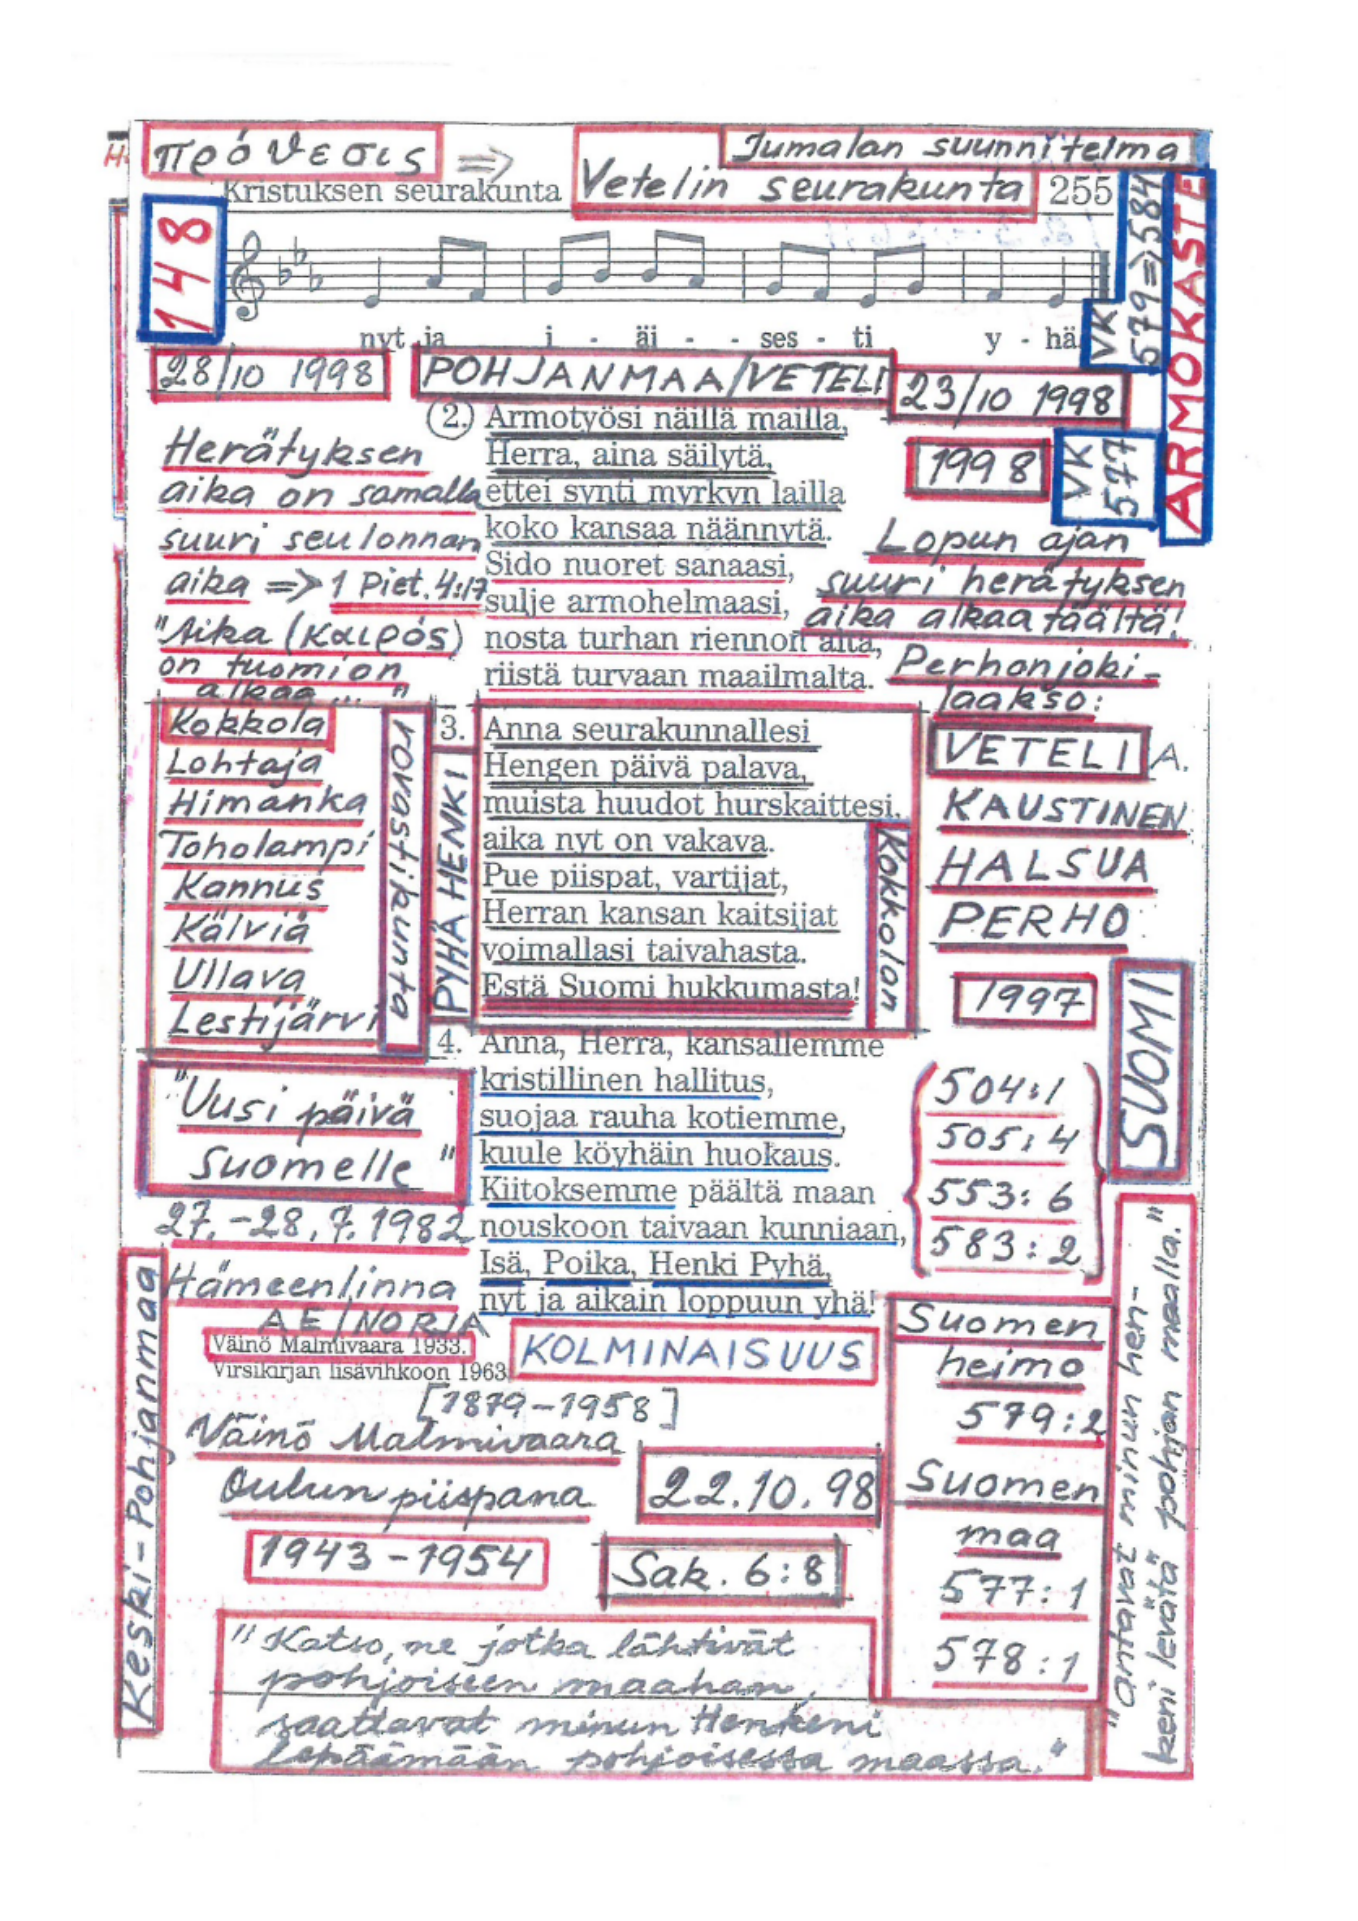 πρόθεσις ⇒
Jumalan suunnitelma
Kristuksen seurakunta
Vetelin seurakunta
255
148
VK 579⇒584
ARMOKASTE
nyt ja i - äi - - ses - ti y - hä
28/10 1998
POHJANMAA/VETELI
23/10 1998
1998
VK 577
(2.) Armotyösi näillä mailla,
Herra, aina säilytä,
ettei synti myrkyn lailla
koko kansaa näännytä.
Sido nuoret sanaasi,
sulje armohelmaasi,
nosta turhan riennon alta,
riistä turvaan maailmalta.
Herätyksen
aika on samalla
suuri seulonnan
aika => 1 Piet. 4:17
"Aika (καιρός)
on tuomion
alkaa ... "
Lopun ajan
suuri herätyksen
aika alkaa täältä!
Perhonjoki-
laakso:
VETELI A.
KAUSTINEN
HALSUA
PERHO
1997
Kokkola
Lohtaja
Himanka
Toholampi
Kannus
Kälviä
Ullava
Lestijärvi
rovastikunta
PYHÄ HENKI
3. Anna seurakunnallesi
Hengen päivä palava,
muista huudot hurskaittesi,
aika nyt on vakava.
Pue piispat, vartijat,
Herran kansan kaitsijat
voimallasi taivahasta.
Estä Suomi hukkumasta!
Kokkolan
SUOMI
4. Anna, Herra, kansallemme
kristillinen hallitus,
suojaa rauha kotiemme,
kuule köyhäin huokaus.
Kiitoksemme päältä maan
nouskoon taivaan kunniaan,
Isä, Poika, Henki Pyhä,
nyt ja aikain loppuun yhä!
504:1
505:4
553:6
583:2
"Uusi päivä
Suomelle"
27.-28.7.1982
Hämeenlinna
AE/NORJA
Väinö Malmivaara 1933.
Virsikirjan lisävihkoon 1963
KOLMINAISUUS
[1879-1958]
Väinö Malmivaara
Oulun piispana
1943-1954
22.10.98
Sak. 6:8
Suomen
heimo
579:2
Suomen
maa
577:1
578:1
Keski-Pohjanmaa
"antavat minun hen-
keni levätä pohjan maalla."
"Katso, ne jotka lähtivät
pohjoiseen maahan,
saattavat minun Henkeni
lepäämään pohjoisessa maassa."